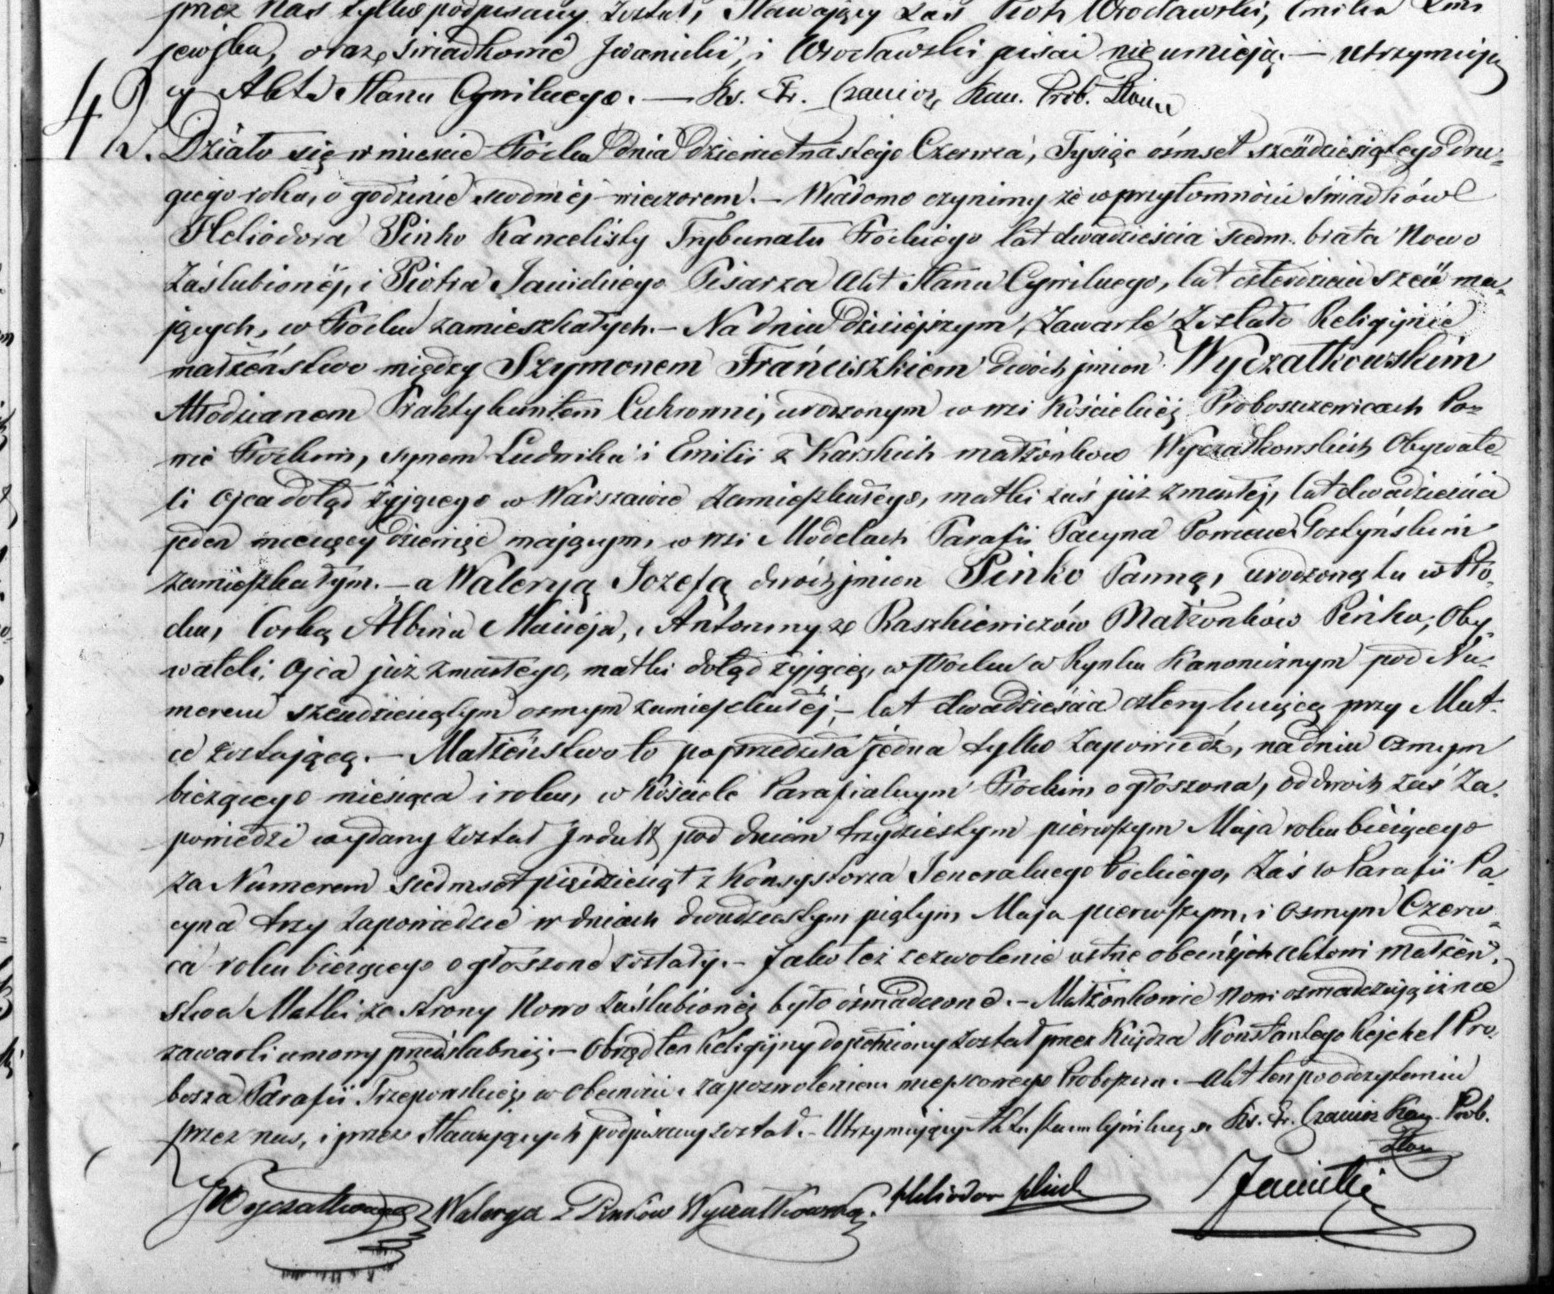 przez nas tylko podpisany został, Stawający zaś Piotr Wrocławski, Emilia
jewska, oraz świadkowie Iwanicki, i Wrocławski pisać nie umieją. — Utrzymują
cy Akta Stanu Cywilnego. — Ks. Fr. Czamicz, Kan. Prob.
42. Działo się w mieście Płocku dnia dziewiętnastego Czerwca, Tysiąc ośmset sześćdziesiątego dru-
giego roku, o godzinie siódmej wieczorem. — Wiadomo czynimy że w przytomności świadków
Heliodora Pinko Kancelisty Trybunału Płockiego lat dwadzieścia siedm. brata Nowo
Zaślubionej, i Piotra Janickiego Pisarza Akt Stanu Cywilnego, lat czterdzieści sześć ma-
jących, w Płocku zamieszkałych. — Na dniu dzisiejszym, Zawarte Zostało Religijnie
małżeństwo między Szymonem Franciszkiem dwóch imion Wyczałkowskim
Młodzianem Praktykantem Cukrowni, urodzonym w wsi Kościelnej Proboszczewicach Po-
wie Płockim, synem Ludwika i Emilii z Karskich małżonków Wyczałkowskich Obywate
li Ojca dotąd żyjącego w Warszawie Zamieszkałego, matki zaś już zmarłej, lat dwadzieścia
jeden miesięcy dziewięć mającym, w wsi Modelach Parafii Pacyna Powiecie Gostyńskim
zamieszkałym. — a Waleryą Jozefą dwóch imion Pinko Panną, urodzoną tu w Pło-
cku, Corką Albina Macieja, i Antoniny z Raszkiewiczów Małżonków Pinko, Oby-
wateli, Ojca już zmarłego, matki dotąd żyjącej, w Płocku w Rynku Kanonicznym pod Nu-
merem sześćdziesiątym osmym zamieszkałej, — lat dwadzieścia cztery liczącą przy Mat-
ce zostającą. — Małżeństwo to poprzedziła jedna tylko Zapowiedź, na dniu osmym
bieżącego miesiąca i roku, w Kościele Parafialnym Płockim ogłoszona, od dwóch zaś Za-
powiedzi wydany został Indult pod dniem trzydziestym pierwszym Maja roku bieżącego
za Numerem siedmset pięćdziesiąt z Konsystorza Jeneralnego Płockiego, Zaś w Parafii Pa-
cyna trzy Zapowiedzie w dniach dwudziestym piątym Maja pierwszym, i osmym Czerw-
ca roku bieżącego ogłoszone zostały. — Jako też zezwolenie ustne obecnych aktowi małżeń-
stwa Matki ze strony Nowo Zaślubionej było oświadczone. — Małżonkowie Nowi oświadczają iż nie
zawarli umowy przedślubnej. — Obrzęd ten Religijny dopełniony został przez Księdza Konstantego Rejchel Pro-
boszcza Parafii Trzepowskiej, w obecności i za pozwoleniem miejscowego Proboszcza. — Akt ten po odczytaniu
przez nas, i przez Stawających podpisany został. — Utrzymujący Akta Stanu Cywilnego Ks. Fr. Czamicz Kan. Prob.
Wyczałkowski Walerya z Pinków Wyczałkowska. Heliodor Pinko Janicki